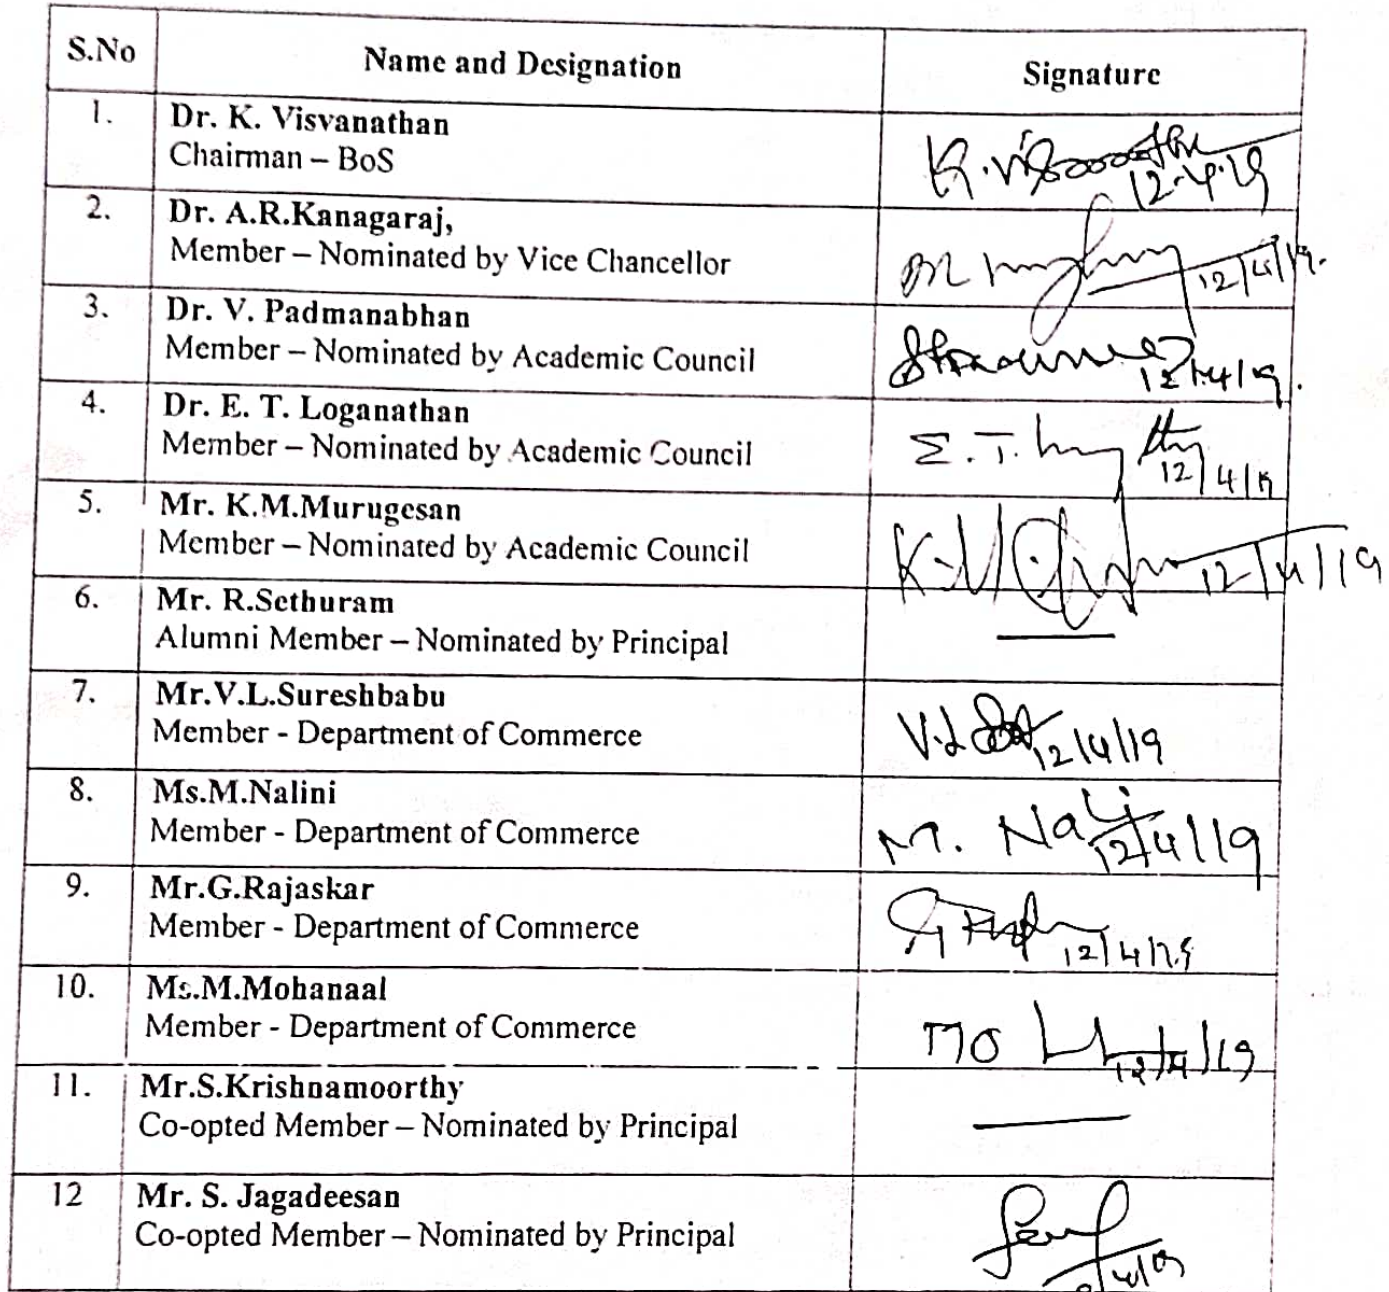 S.No Name and Designation Signature
1. Dr. K. Visvanathan
Chairman – BoS
12-4-19
2. Dr. A.R.Kanagaraj,
Member – Nominated by Vice Chancellor
12/4/19.
3. Dr. V. Padmanabhan
Member – Nominated by Academic Council
12/4/19.
4. Dr. E. T. Loganathan
Member – Nominated by Academic Council
E.T.
12/4/19
5. Mr. K.M.Murugesan
Member – Nominated by Academic Council
K.M 12/4/19
6. Mr. R.Sethuram
Alumni Member – Nominated by Principal
7. Mr.V.L.Sureshbabu
Member - Department of Commerce
V.L 12/4/19
8. Ms.M.Nalini
Member - Department of Commerce
M. Nali
12/4/19
9. Mr.G.Rajaskar
Member - Department of Commerce
12/4/19
10. Ms.M.Mohanaal
Member - Department of Commerce
12/4/19
11. Mr.S.Krishnamoorthy
Co-opted Member – Nominated by Principal
12 Mr. S. Jagadeesan
Co-opted Member – Nominated by Principal